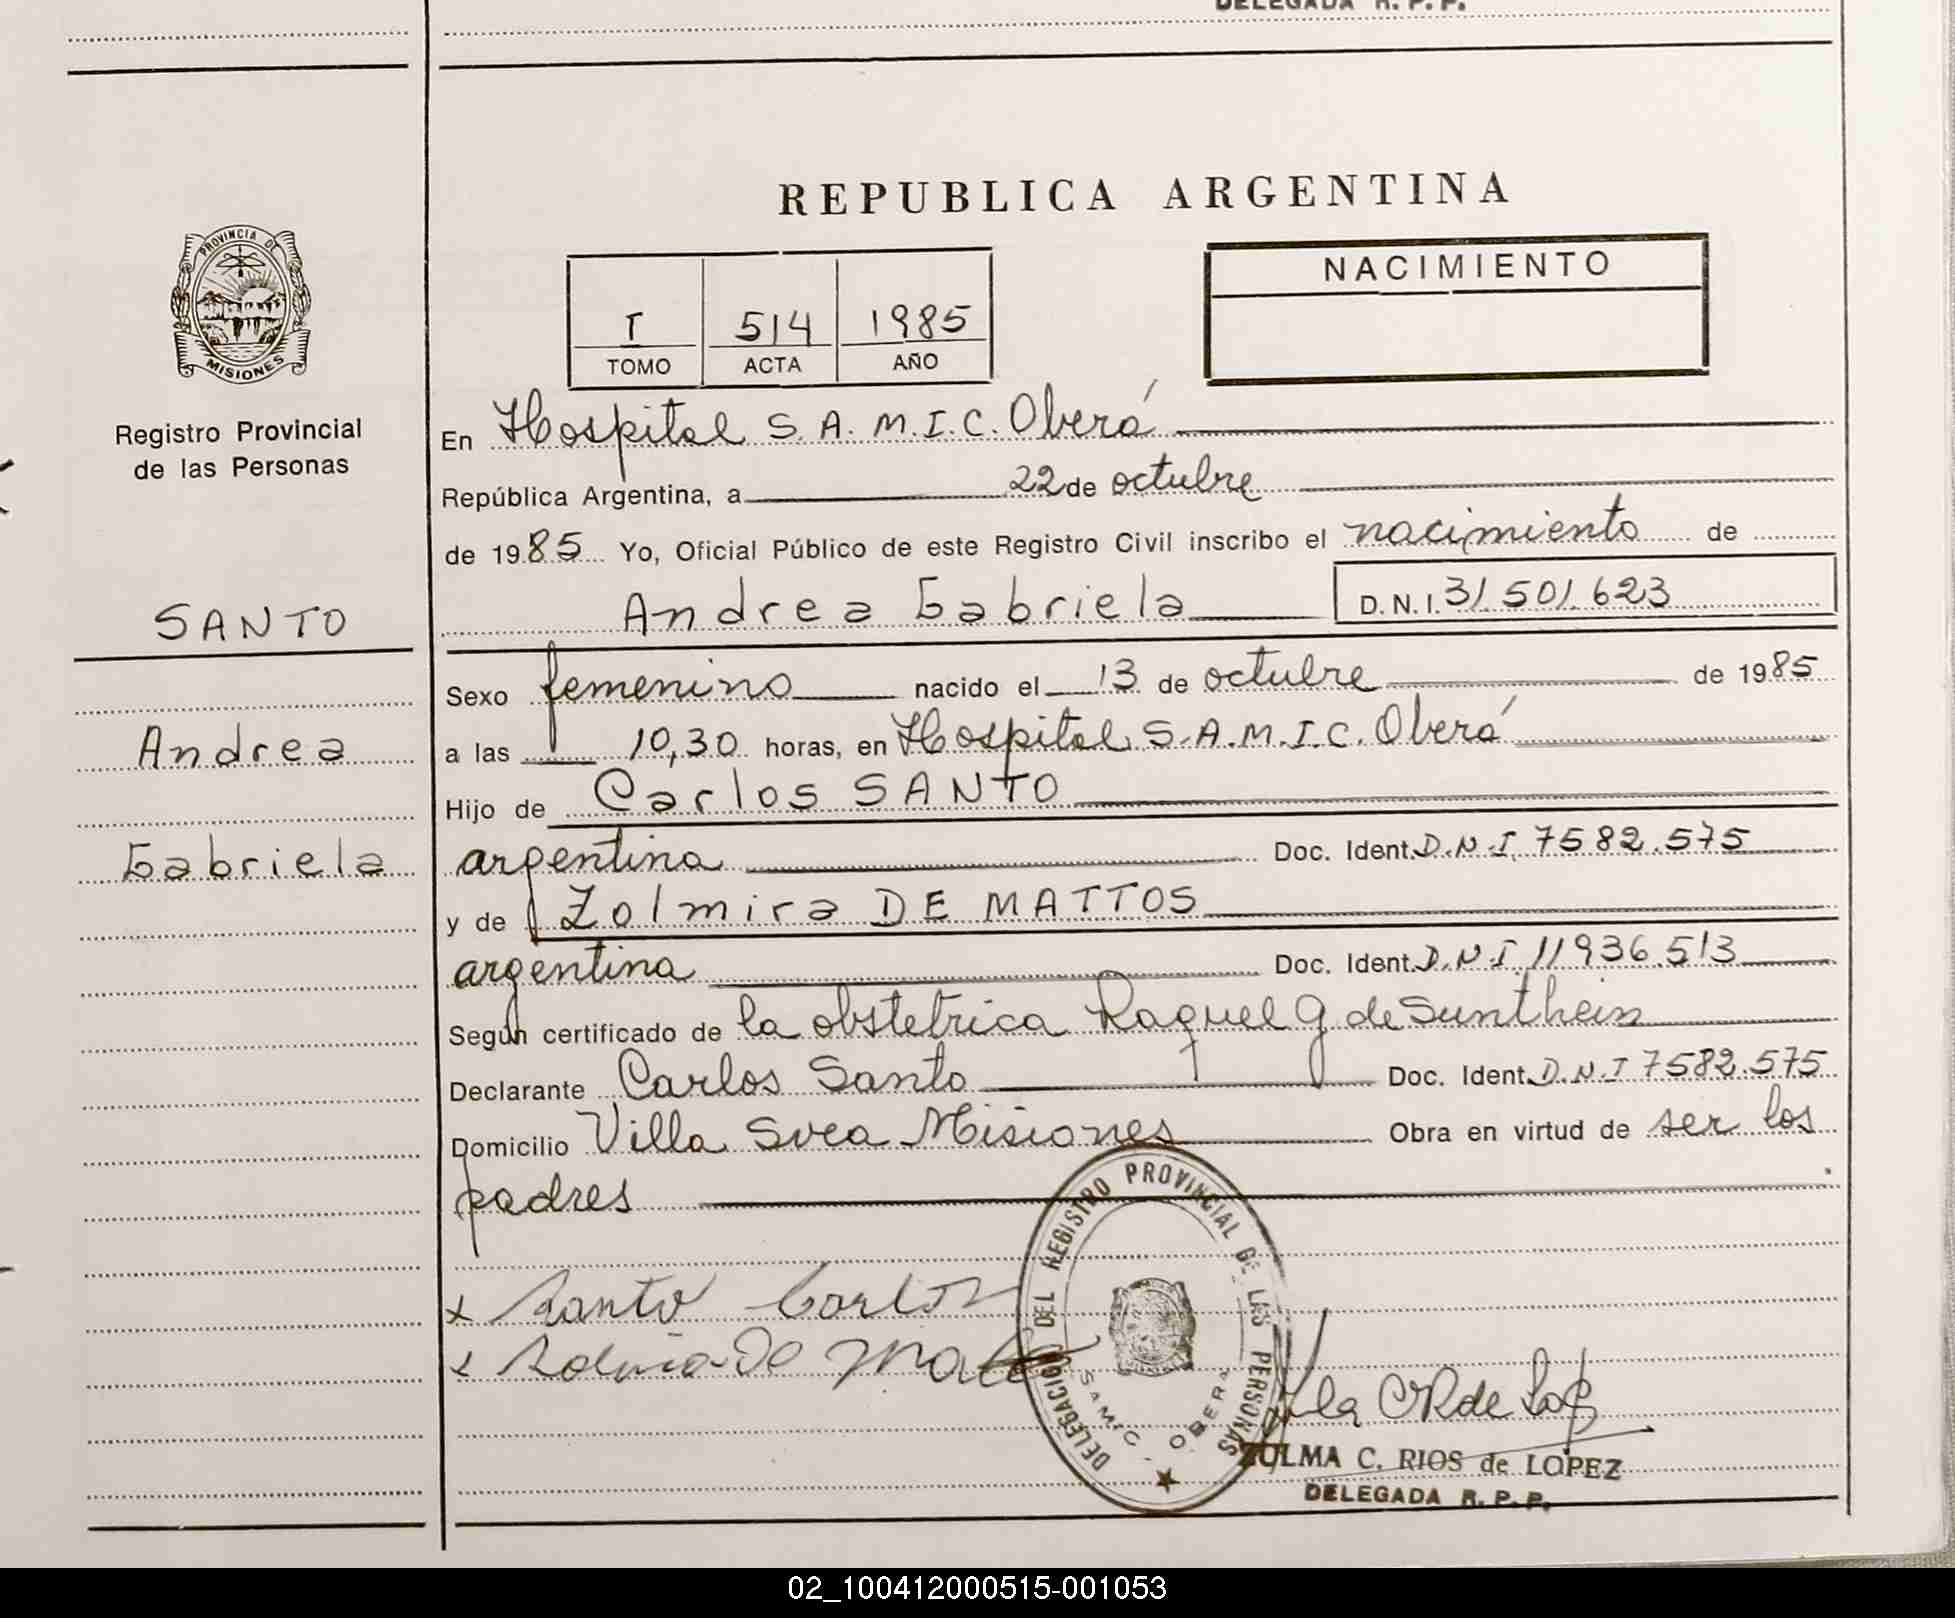 DELEGADA R. P. P.
REPUBLICA ARGENTINA
PROVINCIA DE
MISIONES
Registro Provincial
de las Personas
SANTO
Andrea
Gabriela
T 514 1985
TOMO ACTA AÑO
NACIMIENTO
En Hospital S.A.M.I.C. Oberá
República Argentina, a 22 de octubre
de 1985 Yo, Oficial Público de este Registro Civil inscribo el nacimiento de
Andrea Gabriela D.N.I. 31.501.623
Sexo femenino nacido el 13 de octubre de 1985
a las 10,30 horas, en Hospital S.A.M.I.C. Oberá
Hijo de Carlos SANTO
argentina Doc. Ident. D.N.I. 7582.575
y de Zolmira DE MATTOS
argentina Doc. Ident. D.N.I 11936.513
Según certificado de la obstetrica Raquel G de Sunthein
Declarante Carlos Santo Doc. Ident. D.N.I 7582.575
Domicilio Villa Svea Misiones Obra en virtud de ser los
padres
x Santo Carlos
x De
DELEGACIO DEL REGISTRO PROVINCIAL DE LAS PERSONAS
SAMIC - OBERA
ZULMA C. RIOS de LOPEZ
DELEGADA R. P. P.
02_100412000515-001053